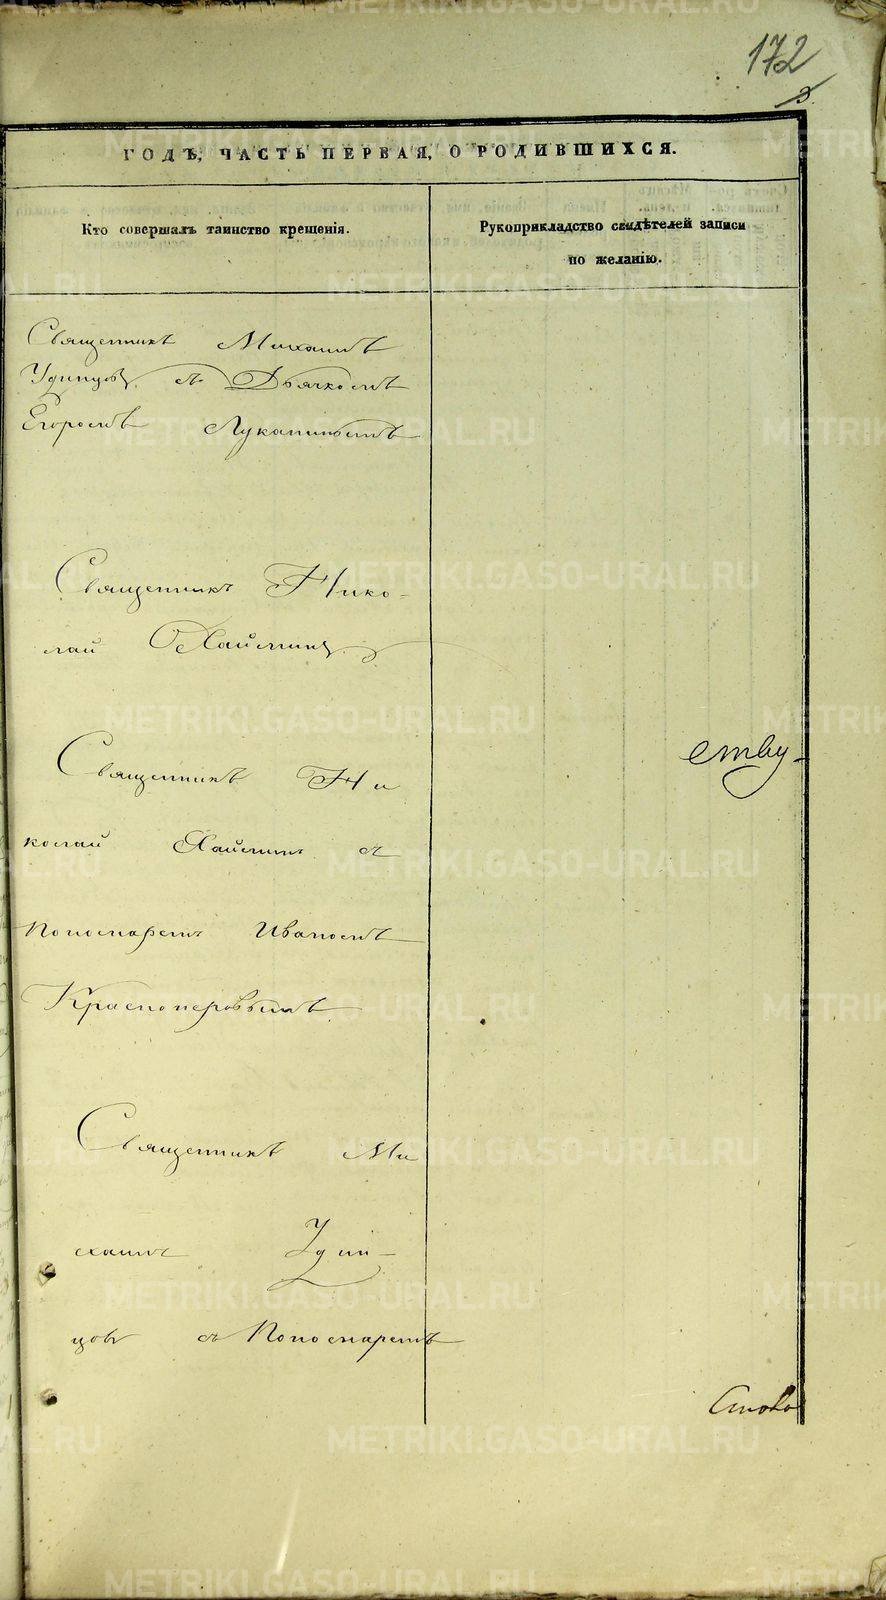 172
3.
ГОДЪ, ЧАСТЬ ПЕРВАЯ, О РОДИВШИХСЯ.
Кто совершалъ таинство крещенія.
Рукоприкладство свидѣтелей записи
по желанію.
Священникъ Михаилъ
Удинцовъ съ Дьячкомъ
Егоромъ Луканинымъ
Священникъ Нико-
лай Хаймин
Священникъ Ни
колай Хаймин съ
ству-
Пономаремъ Иваномъ
Красноперовымъ
Священникъ Ми
хаилъ Удин-
цовъ съ Пономаремъ
METRIKI.GASO-URAL.RU